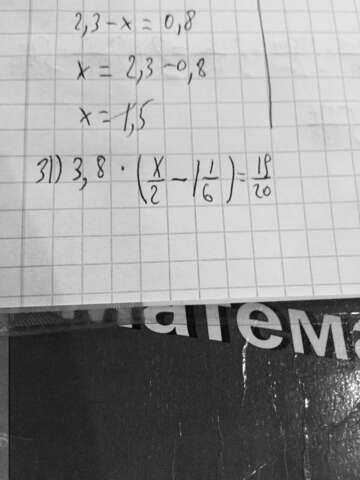 2,3 - x = 0,8
x = 2,3 - 0,8
x = 1,5
31) 3,8 · (x/2 - 1 1/6) = 19/20
Матема